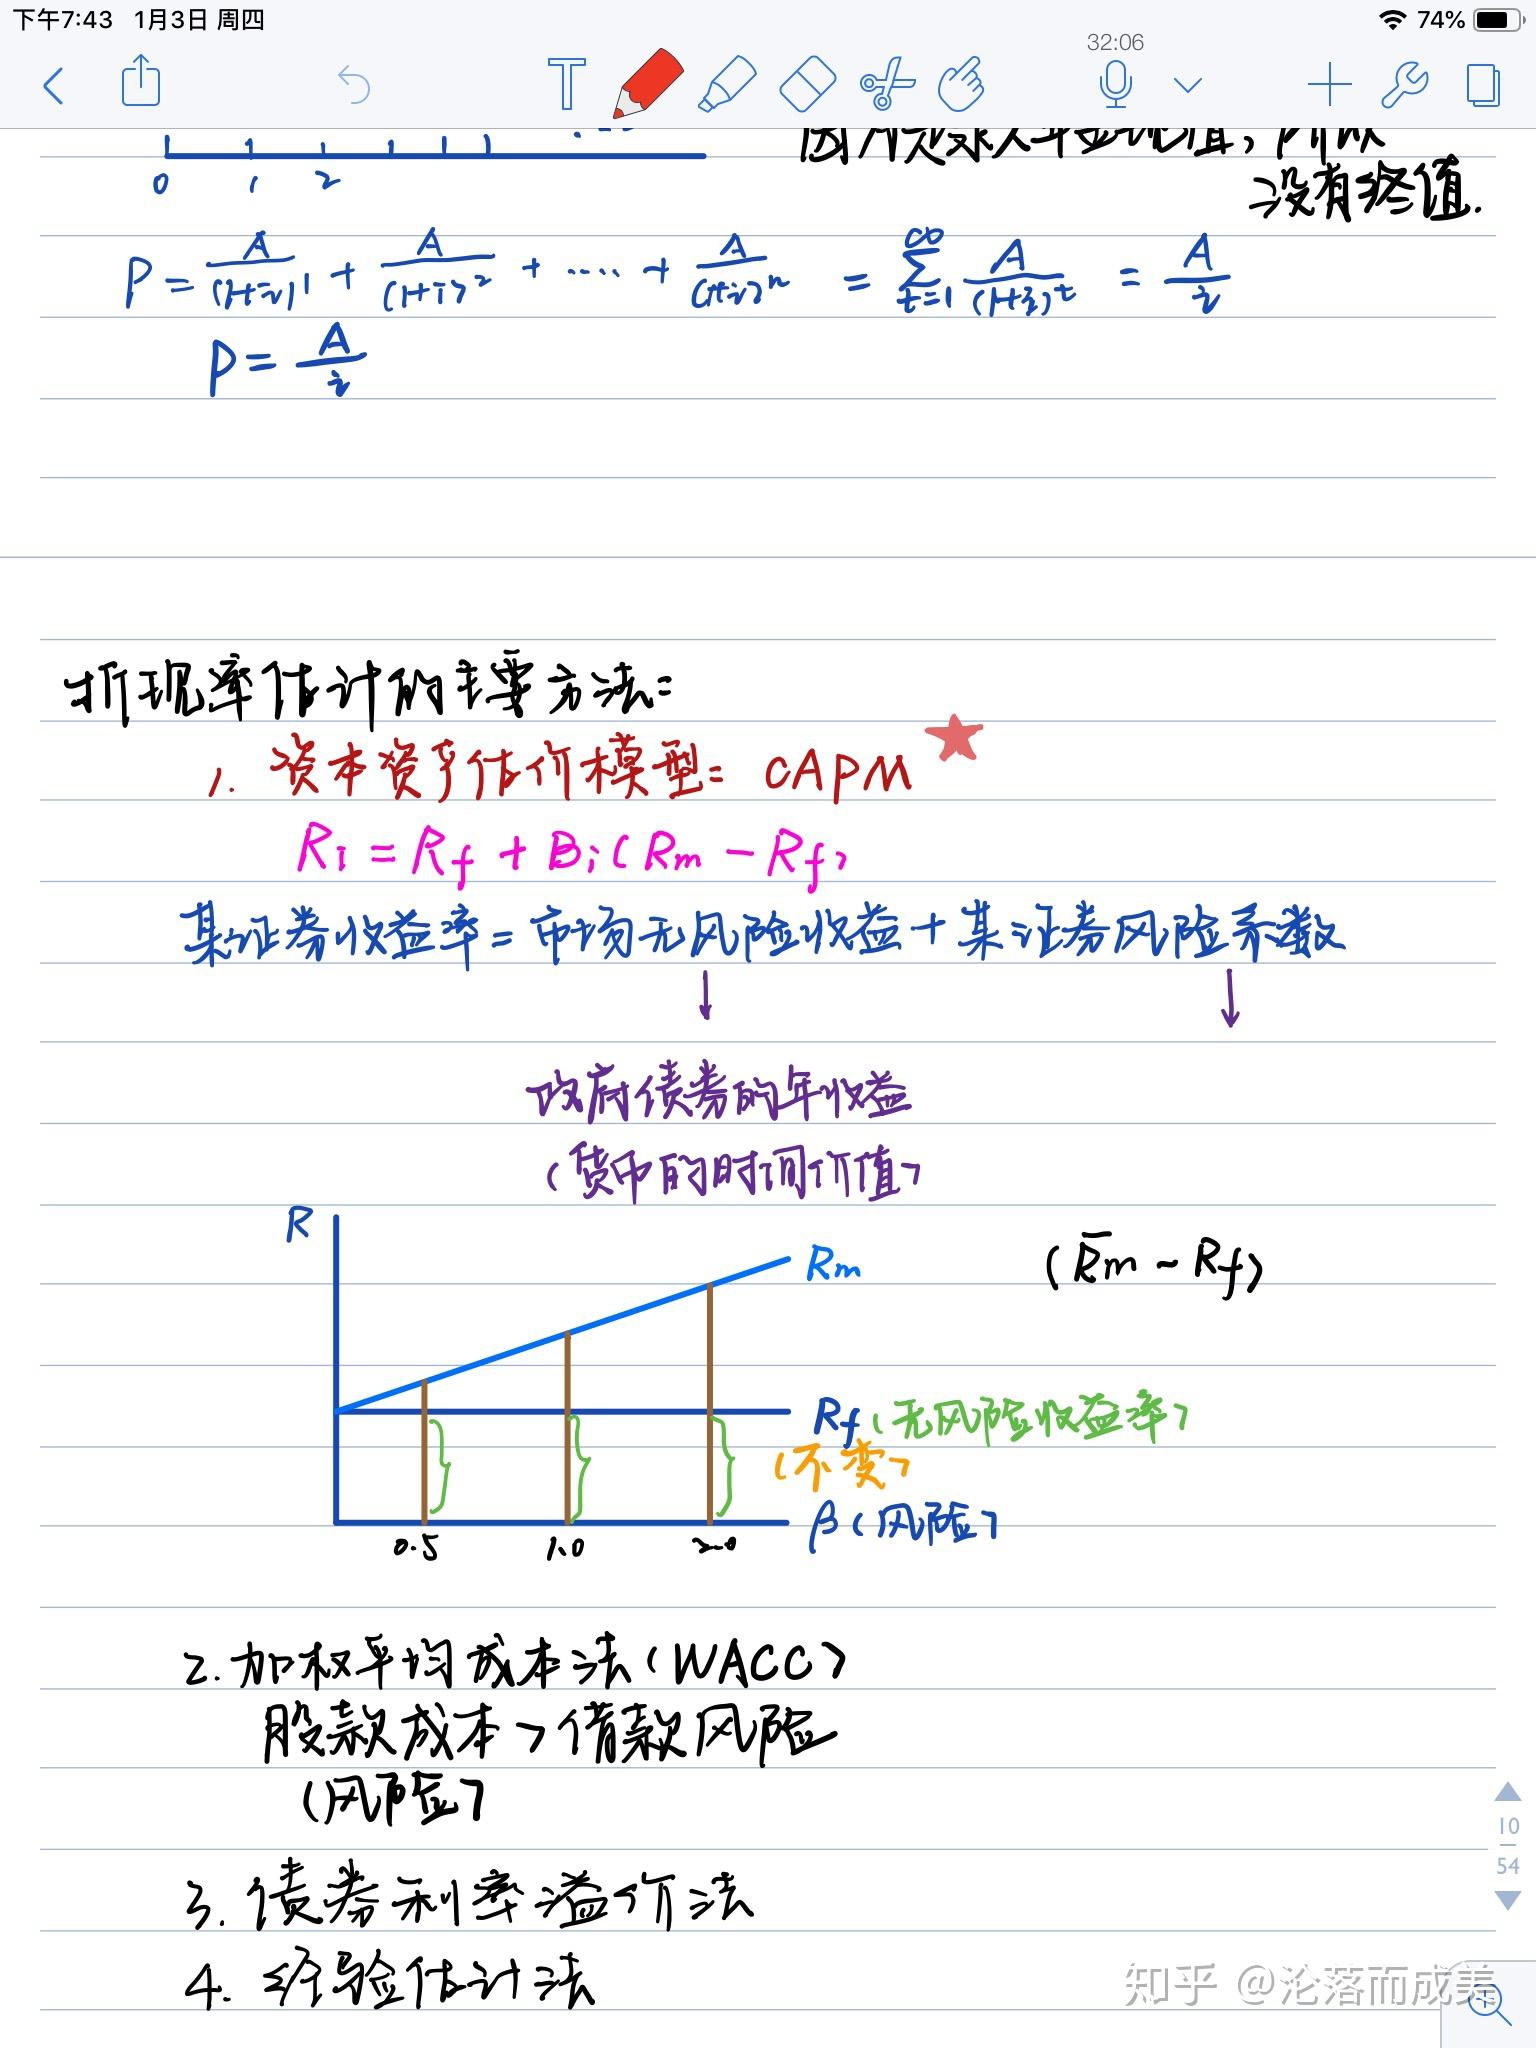 下午7:43 1月3日 周四
74%
32:06
0 1 2
没有终值.
P = A/(1+i)^1 + A/(1+i)^2 + ..... + A/(1+i)^n = ∑_{t=1}^{∞} A/(1+i)^t = A/i
P = A/i
折现率估计的主要方法:
1. 资本资产估价模型: CAPM
Ri = Rf + Bi(Rm - Rf)
某证券收益率 = 市场无风险收益 + 某证券风险系数
↓ ↓
政府债券的年收益
(货币的时间价值)
R
Rm
(R̄m - Rf)
Rf (无风险收益率)
(不变)
β (风险)
0.5 1.0 2.0
2. 加权平均成本法 (WACC)
股款成本 > 借款风险
(风险)
3. 债券利率溢价法
4. 经验估计法
10
54
知乎 @沦落而成美